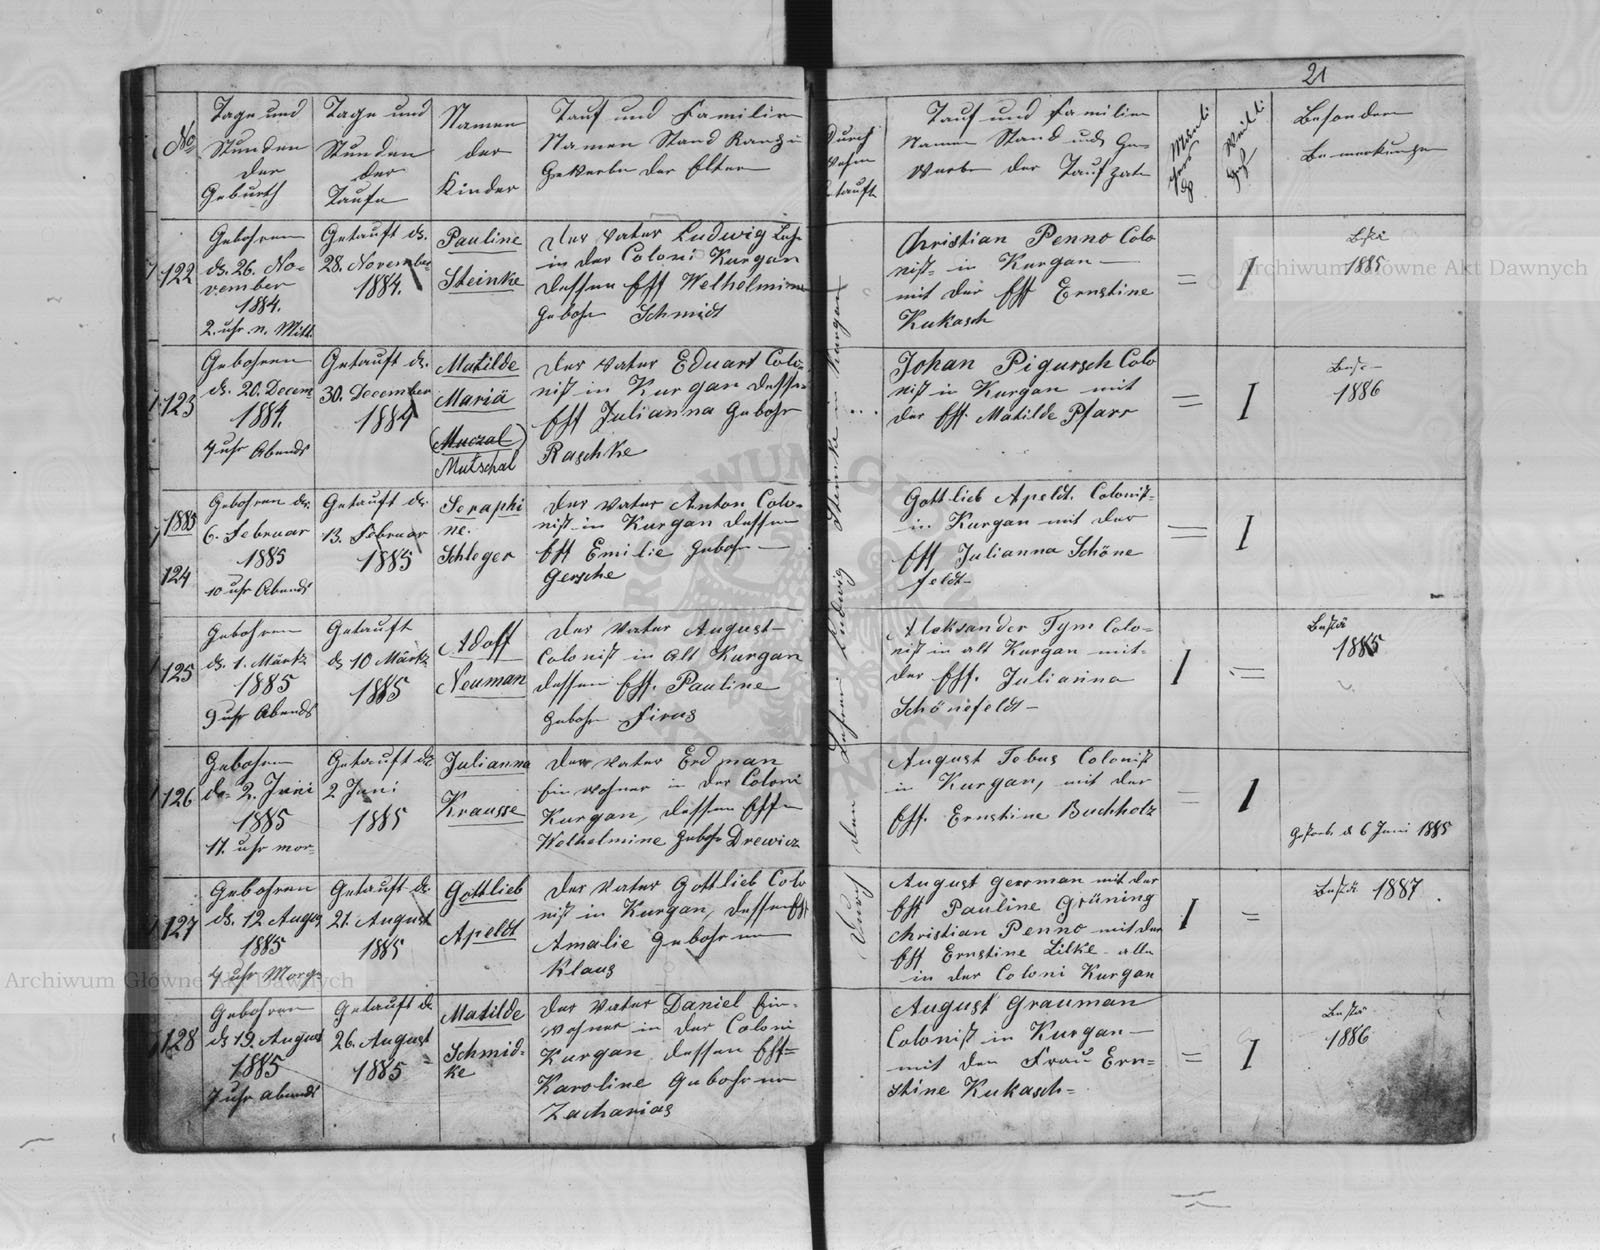 21
No
Tage und
Stunden
der
Geburth
Tage und
Stunden
der
Taufe
Namen
der
Kinder
Tauf und Familien
Namen Stand Rang u
Gewerbe der Eltern
Durch
wehm
Tauf und Familien
Namen Stand und Ge=
werbe der Taufpate
Besondere
Bemerkungen
122
Gebohren
d. 26. No=
vember
1884.
2. uhr n. Mitt.
Getauft d.
28. November
1884.
Pauline
Steinke
der Vater Ludwig
in der Coloni Kurgan
dessen Ehf Welhelmine
Gebohr Schmidt
Christian Penno Colo
nist in Kurgan
mit der Ehf Ernstine
Kukasch
= I
1885
123
Gebohren
d. 20. Decem
1884.
7 uhr Abends
Getauft d.
30. December
1884
Matilde
Mariä
(Muczal)
Mutschal
der Vater Eduart Colo=
nist in Kurgan dessen
Ehf Julianna Gebohr
Raschke
Johan Pigursch Colo
nist in Kurgan mit
der Ehf. Matilde Pfarr
= I
1886
1885
124
Gebohren d.
6. Februar
1885
10 uhr Abends
Getauft d.
13. Februar
1885
Seraphi
ne.
Schleger
der Vater Anton Colo=
nist in Kurgan dessen
Ehf Emilie Gebohr
Gersche
Gottlieb Apeldt. Colonist
in Kurgan mit der
Ehf Julianna Schöne
feldt
= I
125
Gebohren
d. 1. Märtz
1885
9 uhr Abends
Getauft
d. 10 Märtz
1885
Adolf
Neuman
der Vater August
Colonist in Alt Kurgan
dessen Ehf. Pauline
Gebohr Firus
Aleksander Tym Colo=
nist in alt Kurgan mit
der Ehf. Julianna
Schönefeldt
I =
1885
126
Gebohren
d. 2. Juni
1885
11. uhr mor=
Getauft d
2 Juni
1885
Julianna
Krausse
der Vater Erdman
Einwohner in der Coloni
Kurgan, dessen Ehf
Welhelmine Gebohr Drewicz
August Tobus Colonist
in Kurgan, mit der
Ehf. Ernstine Buchholz
= I
Gestorb. d 6 Juni 1885
127
Gebohren
d. 12. August
1885
4 uhr Morg=
Getauft d.
21. August
1885
Gottlieb
Apeldt
der Vater Gottlieb Colo
nist in Kurgan, dessen Ehf
Amalie Gebohren
Klaus
August Gerrman mit der
Ehf Pauline Grüning
Christian Penno mit der
Ehf Ernstine Lilke alle
in der Coloni Kurgan
I =
1887
128
Gebohren
d 19. August
1885
7 uhr abends
Getauft d
26. August
1885
Matilde
Schmid=
ke
der Vater Daniel Ein=
wohner in der Coloni
Kurgan dessen Ehf=
Karoline Gebohren
Zacharias
August Grauman
Colonist in Kurgan
mit den Frau Ern=
stine Kukasch=
= I
1886
Durch den Ludwig Steinke in Kurgan
Archiwum Główne Akt Dawnych
Archiwum Główne Akt Dawnych